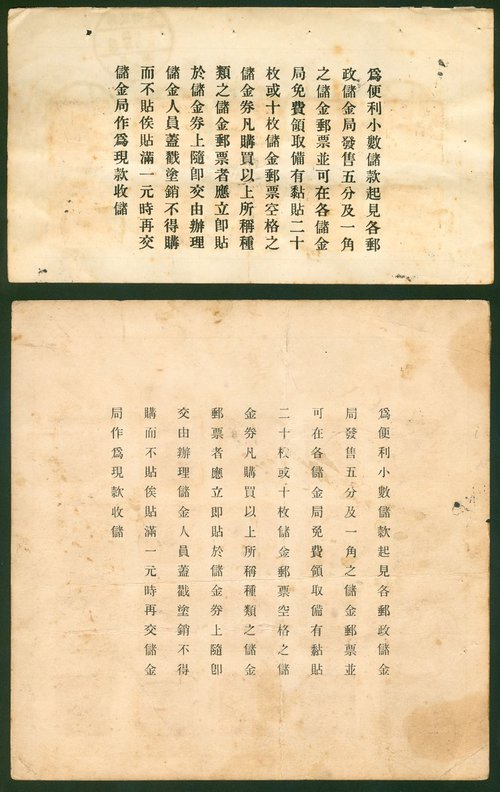 為便利小數儲款起見各郵
政儲金局發售五分及一角
之儲金郵票並可在各儲金
局免費領取備有黏貼二十
枚或十枚儲金郵票空格之
儲金券凡購買以上所稱種
類之儲金郵票者應立卽貼
於儲金券上隨卽交由辦理
儲金人員蓋戳塗銷不得購
而不貼俟貼滿一元時再交
儲金局作爲現款收儲
為便利小數儲款起見各郵政儲金
局發售五分及一角之儲金郵票並
可在各儲金局免費領取備有黏貼
二十枚或十枚儲金郵票空格之儲
金券凡購買以上所稱種類之儲金
郵票者應立卽貼於儲金券上隨卽
交由辦理儲金人員蓋戳塗銷不得
購而不貼俟貼滿一元時再交儲金
局作爲現款收儲